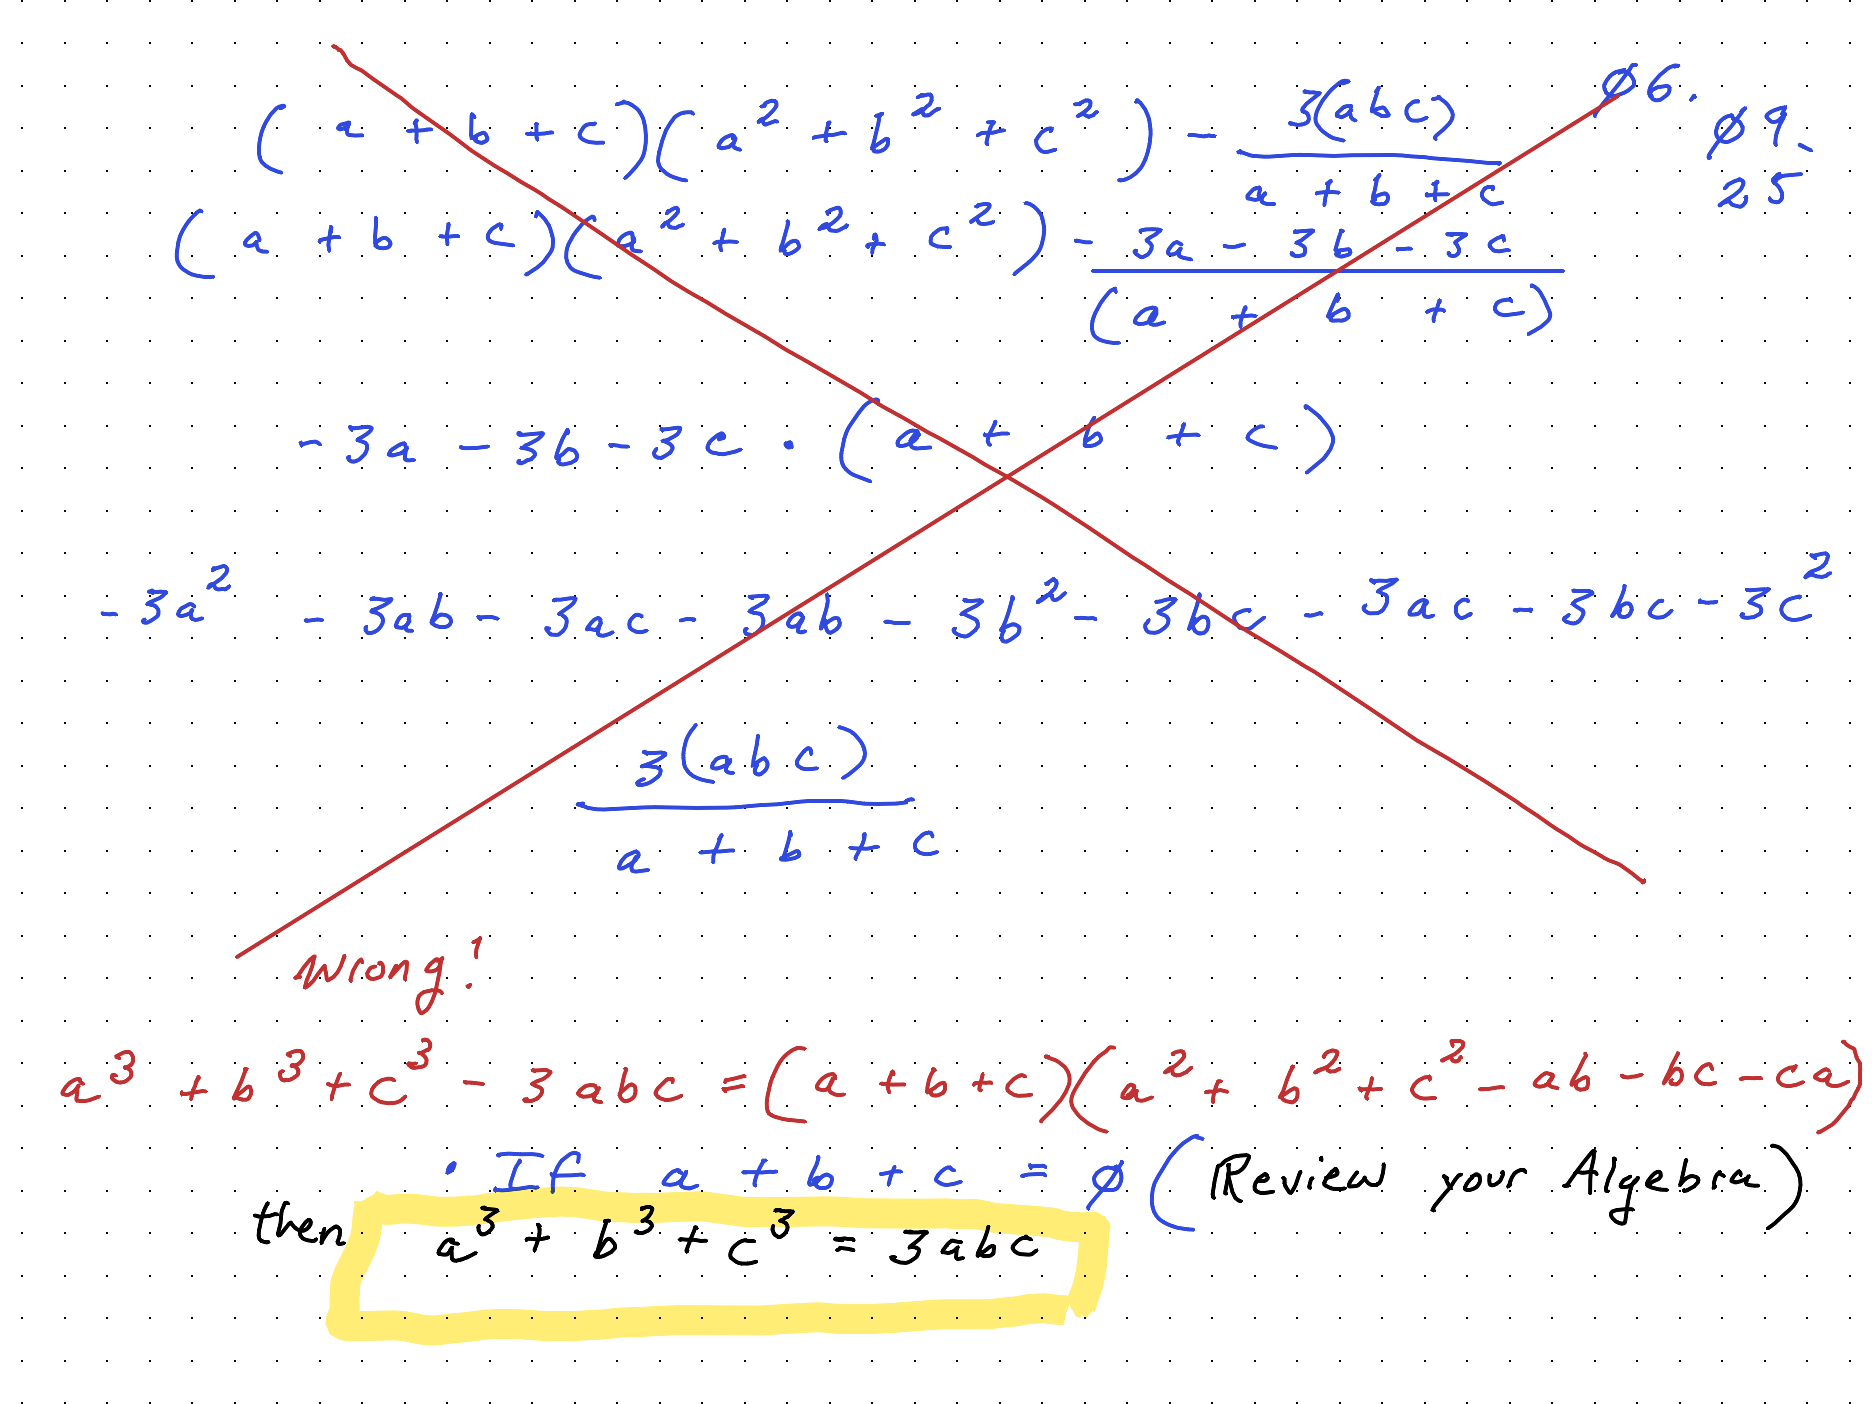 (a + b + c)(a² + b² + c²) - 3(abc) / a + b + c
Ø6.
Ø9.
25
(a + b + c)(a² + b² + c²) - 3a - 3b - 3c / (a + b + c)
- 3a - 3b - 3c · (a + b + c)
- 3a² - 3ab - 3ac - 3ab - 3b² - 3bc - 3ac - 3bc - 3c²
3(abc) / a + b + c
Wrong!
a³ + b³ + c³ - 3abc = (a + b + c)(a² + b² + c² - ab - bc - ca)
· If a + b + c = Ø (Review your Algebra)
then a³ + b³ + c³ = 3abc